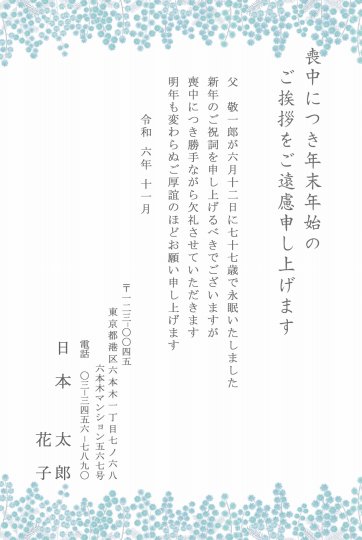 喪中につき年末年始の
ご挨拶をご遠慮申し上げます
父　敬一郎が六月十二日に七十七歳で永眠いたしました
新年のご祝詞を申し上げるべきでございますが
喪中につき勝手ながら欠礼させていただきます
明年も変わらぬご厚誼のほどお願い申し上げます
令和　六年　十一月
〒一二三−〇〇四五
東京都港区六本木一丁目七ノ六八
六本木マンション五六七号
電話　〇三−三四五六−七八九〇
日本　太郎
花子